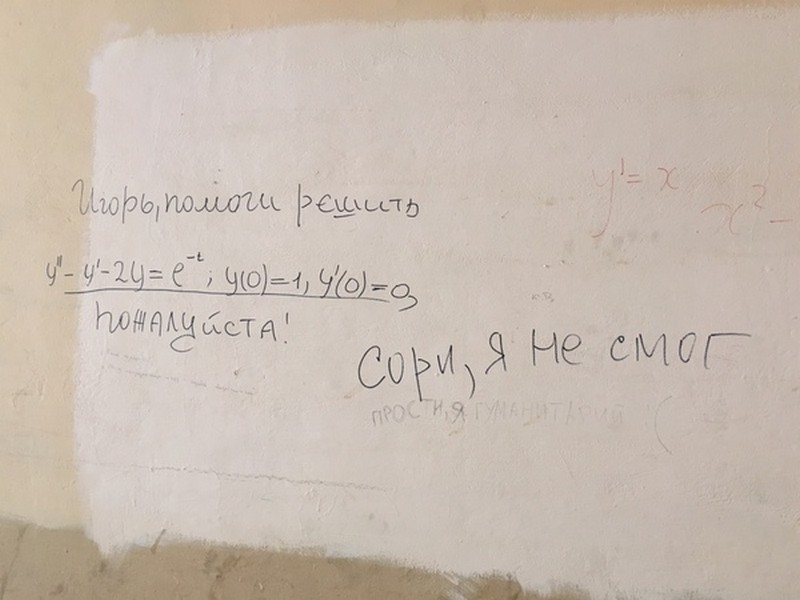 Игорь, помоги решить
y" - y' - 2y = e^-t; y(0)=1, y'(0)=0,
пожалуйста!
Сори, я не смог
ПРОСТИ, Я
y' = x
x² -